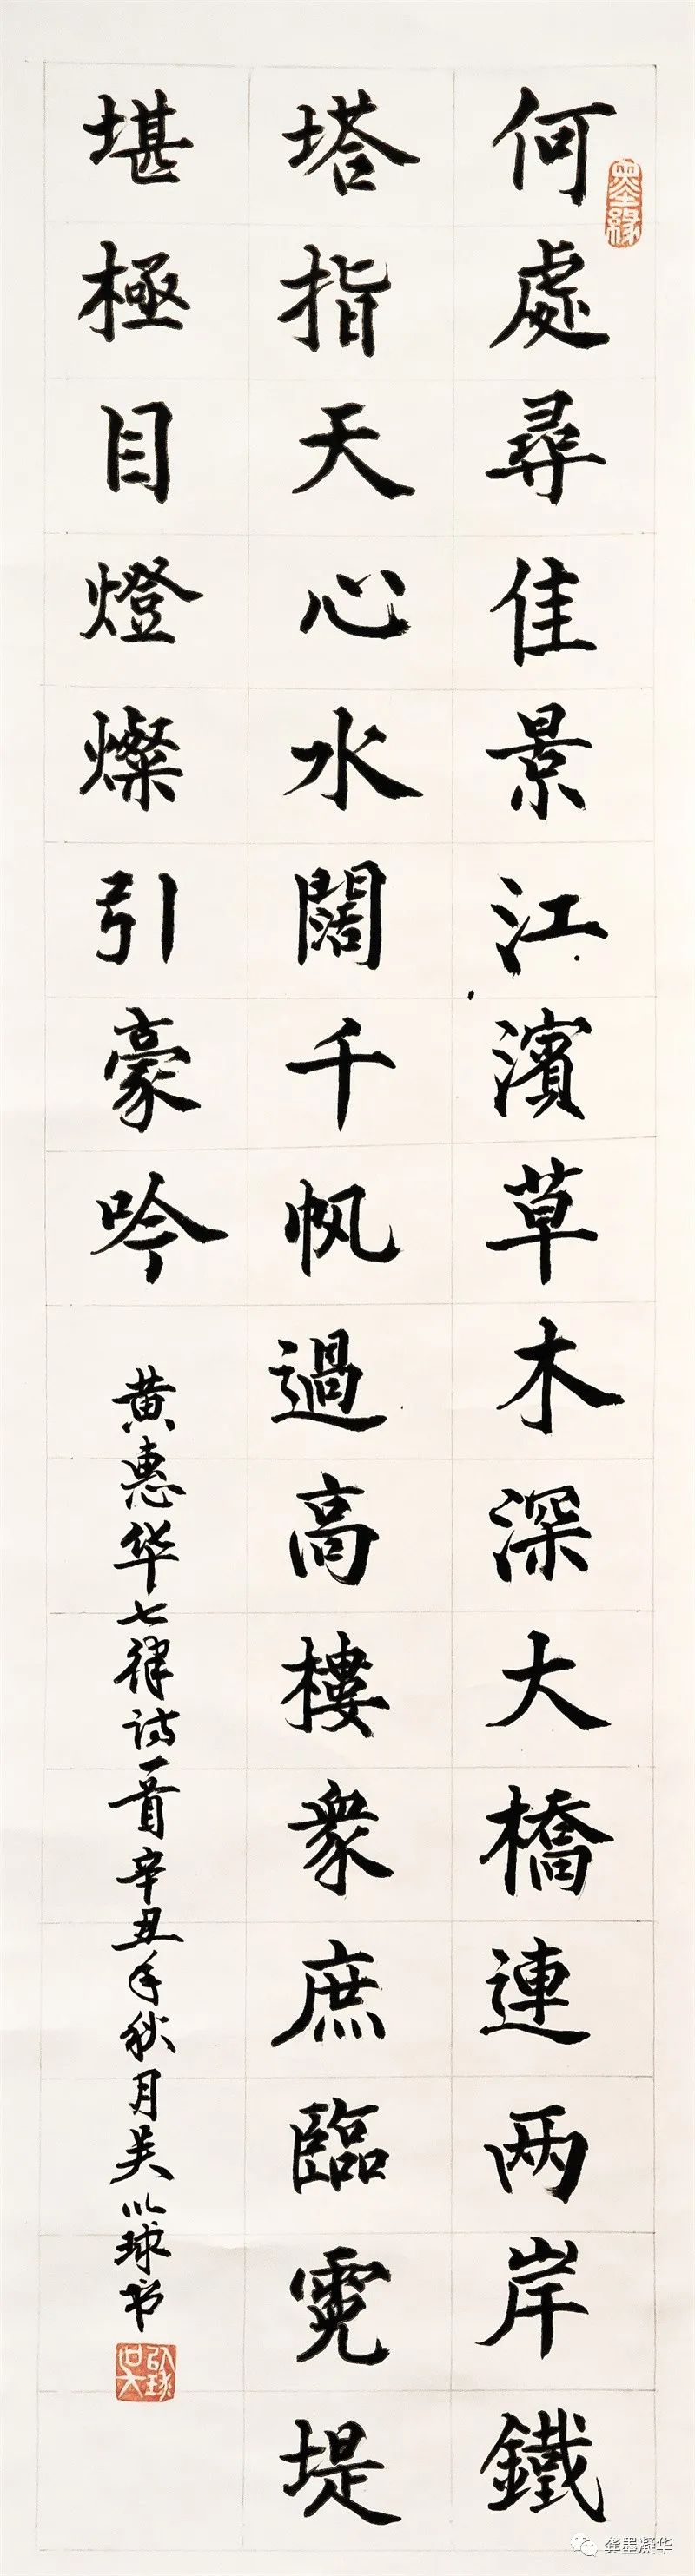 何處尋佳景江濱草木深大橋連两岸鐵
塔指天心水闊千帆過高樓衆庶臨霓堤
堪極目燈燦引豪吟
黄惠华七律诗一首辛丑年秋月吴以球书
墨緣
龚墨凝华